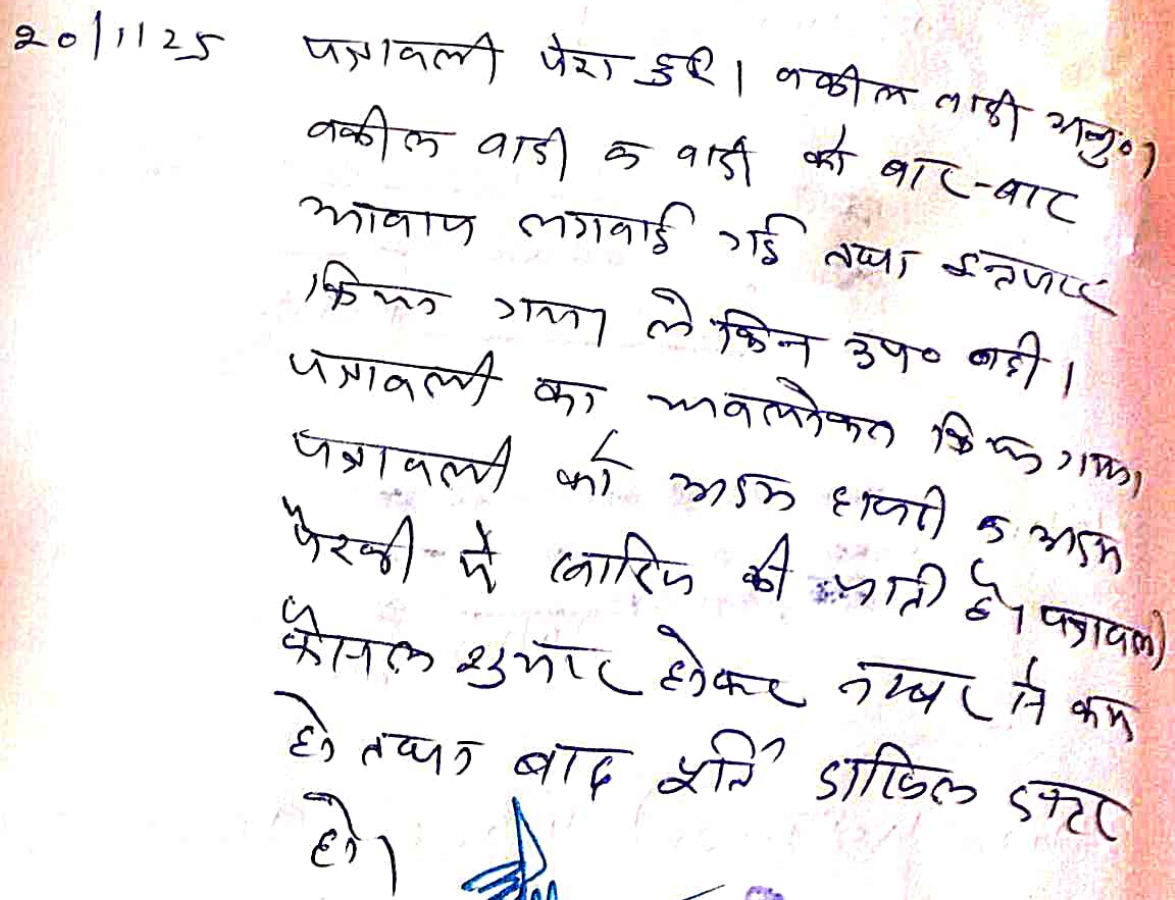 20/11/25 पत्रावली पेश हुई। वकील वादी अनु०।
वकील वादी व वादी को बार-बार
आवाज लगवाई गई तथा इन्तजार
किया गया लेकिन उप० नहीं।
पत्रावली का अवलोकन किया गया।
पत्रावली को अदम हाजरी व अदम
पैरवी में खारिज की जाती है। पत्रावली
फैसल शुमार होकर नम्बर से कम
हो तथा बाद पूर्ति दाखिल दफ्तर
हो।